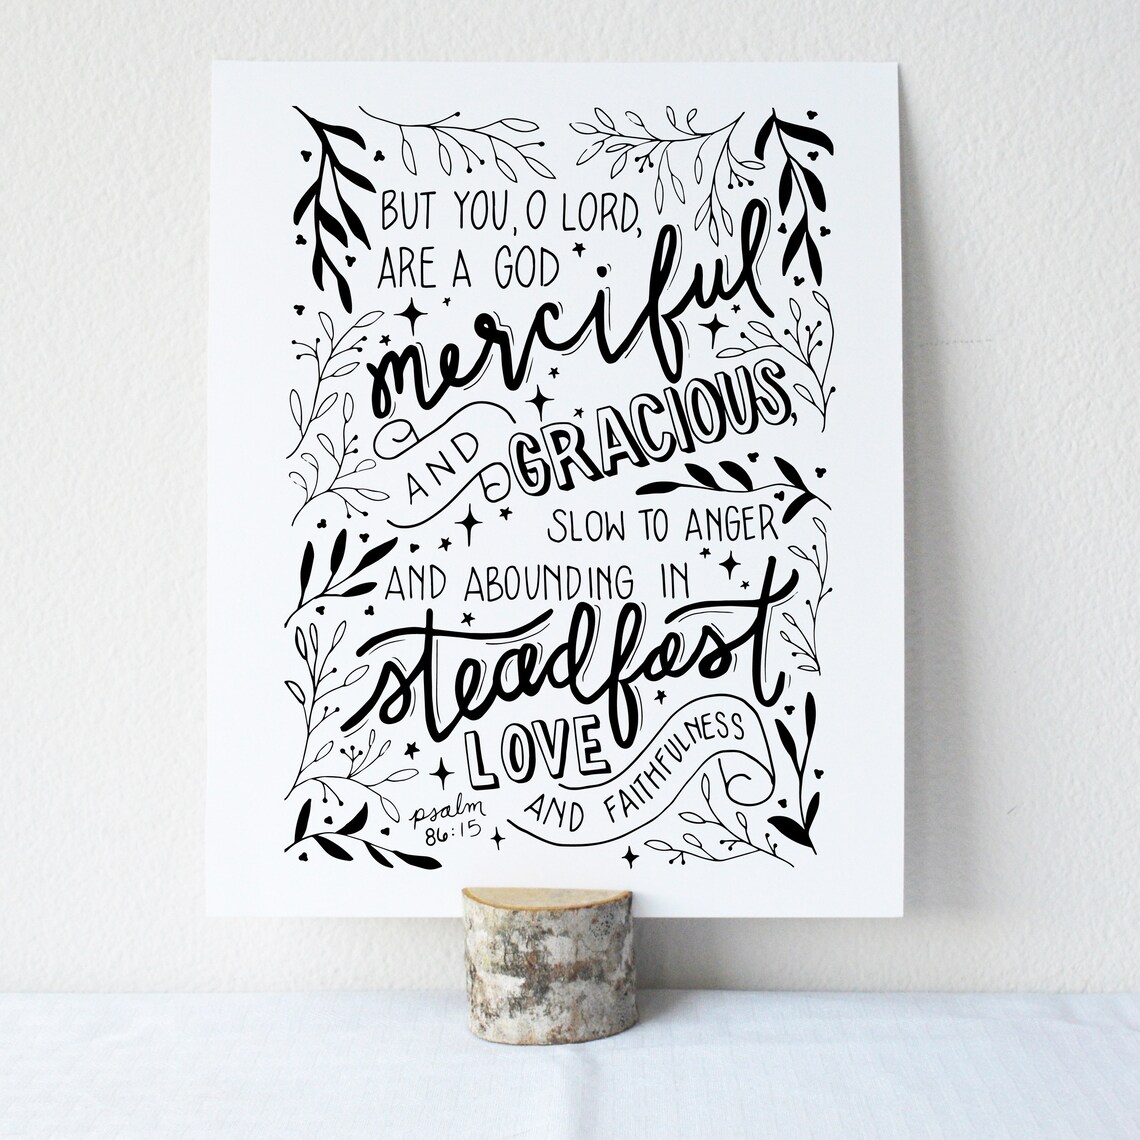 BUT YOU, O LORD,
ARE A GOD
merciful
AND
GRACIOUS,
SLOW TO ANGER
AND ABOUNDING IN
steadfast
LOVE
AND FAITHFULNESS
psalm
86:15